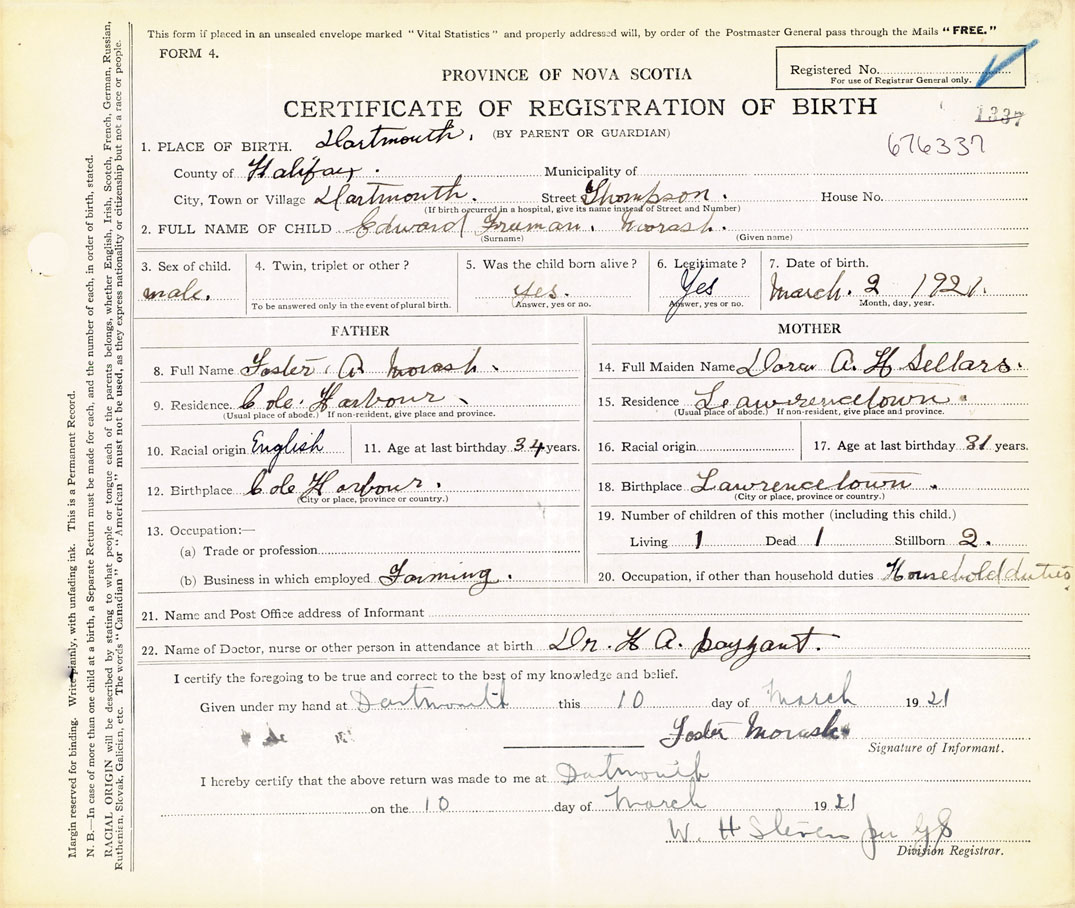 This form if placed in an unsealed envelope marked "Vital Statistics" and properly addressed will, by order of the Postmaster General pass through the Mails "FREE."
FORM 4.
PROVINCE OF NOVA SCOTIA
Registered No.
For use of Registrar General only.
CERTIFICATE OF REGISTRATION OF BIRTH
1337
(BY PARENT OR GUARDIAN)
676337
1. PLACE OF BIRTH. Dartmouth.
County of Halifax. Municipality of
City, Town or Village Dartmouth. Street Thompson. House No.
(If birth occurred in a hospital, give its name instead of Street and Number)
2. FULL NAME OF CHILD Edward Truman. Morash.
(Surname) (Given name)
3. Sex of child. 4. Twin, triplet or other? 5. Was the child born alive? 6. Legitimate? 7. Date of birth.
male. yes. Yes March. 2 1921.
To be answered only in the event of plural birth. Answer, yes or no. Answer, yes or no. Month, day, year.
FATHER
8. Full Name Foster A. Morash.
9. Residence Cole Harbour
(Usual place of abode.) If non-resident, give place and province.
10. Racial origin English 11. Age at last birthday 34 years.
12. Birthplace Cole Harbour.
(City or place, province or country.)
13. Occupation:—
(a) Trade or profession
(b) Business in which employed Farming.
MOTHER
14. Full Maiden Name Dora A. H Sellars.
15. Residence Leawrencetown
(Usual place of abode.) If non-resident, give place and province.
16. Racial origin 17. Age at last birthday 31 years.
18. Birthplace Lawrencetown.
(City or place, province or country.)
19. Number of children of this mother (including this child.)
Living 1 Dead 1 Stillborn 2.
20. Occupation, if other than household duties Household duties.
21. Name and Post Office address of Informant
22. Name of Doctor, nurse or other person in attendance at birth Dr. H A. Payzant.
I certify the foregoing to be true and correct to the best of my knowledge and belief.
Given under my hand at Dartmouth this 10 day of March 1921
Foster Morash
Signature of Informant.
I hereby certify that the above return was made to me at Dartmouth
on the 10 day of March 1921
W. H Stevens
Division Registrar.
Margin reserved for binding. Write plainly, with unfading ink. This is a Permanent Record.
N. B.—In case of more than one child at a birth, a Separate Return must be made for each, and the number of each, in order of birth, stated.
RACIAL ORIGIN will be described by stating to what people or tongue each of the parents belongs, whether English, Irish, Scotch, French, German, Russian,
Ruthenian, Slovak, Galician, etc. The words "Canadian" or "American" must not be used, as they express nationality or citizenship but not a race or people.